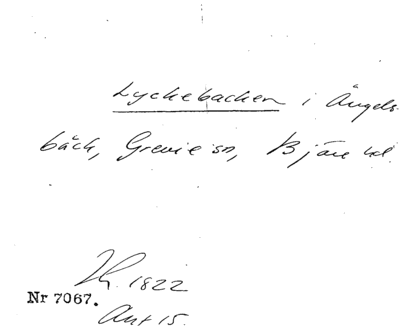 Lyckebacken i Ängels-
bäck, Grevie sn, Bjäre hd.
1822
Nr 7067.
Ant 15.